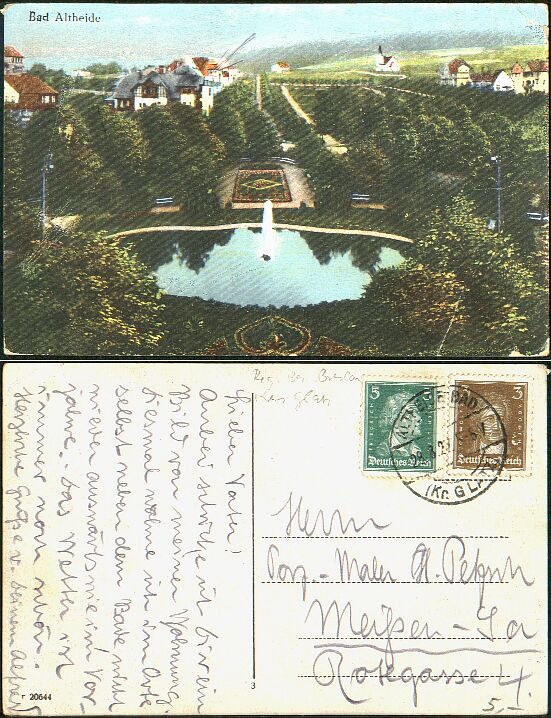 Bad Altheide
Lieber Vater!
Anbei schicke ich dir ein
Bild von meiner Wohnung.
Diesmal wohne ich im Orte
selbst neben dem Bade nicht
wieder auswärts wie im Vor-
jahre. Das Wetter ist
immer noch schön.
Herzliche Grüße v. deinem
r 20644
3
Reg. Bez. Breslau
Kreis Glatz
5
Deutsches Reich
3
Deutsches Reich
ALTHEIDE (BAD)
(Kr. GLATZ)
Herrn
Porz.-Maler H.
Meißen-Sa
Rosegasse 4.
5,-